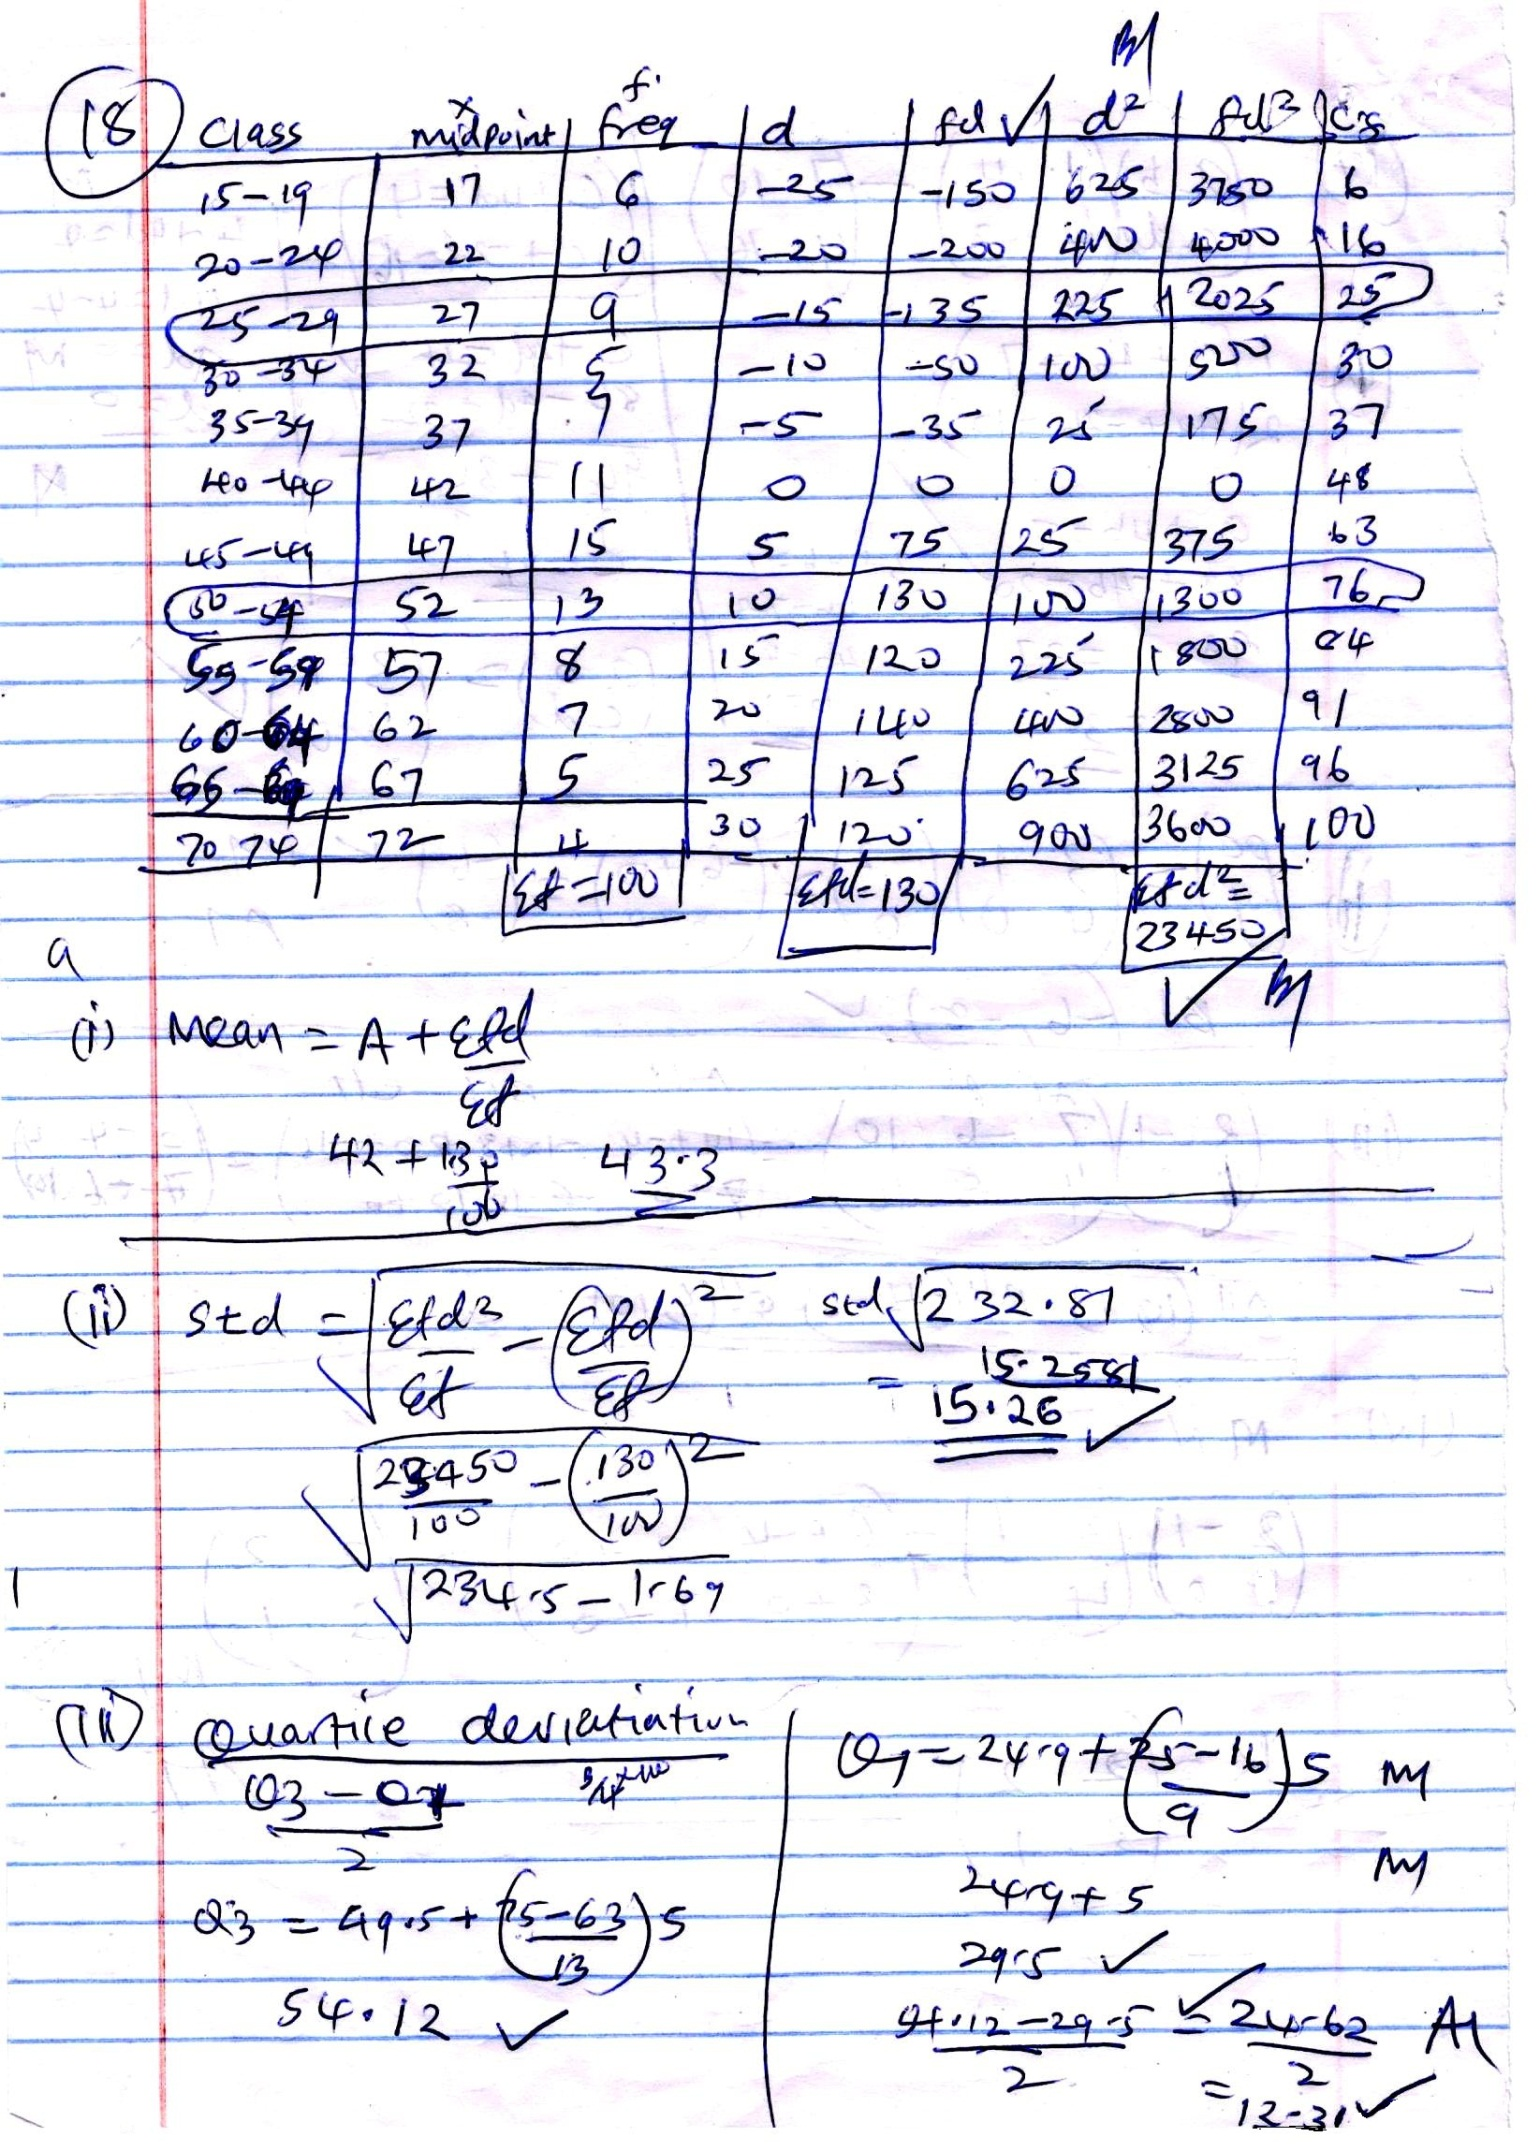 B1
(18) Class | x midpoint | f freq | d | fd ✓ | d² | fd² | Cf
15-19 | 17 | 6 | -25 | -150 | 625 | 3750 | 6
20-24 | 22 | 10 | -20 | -200 | 400 | 4000 | 16
25-29 | 27 | 9 | -15 | -135 | 225 | 2025 | 25
30-34 | 32 | 5 | -10 | -50 | 100 | 500 | 30
35-39 | 37 | 7 | -5 | -35 | 25 | 175 | 37
40-44 | 42 | 11 | 0 | 0 | 0 | 0 | 48
45-49 | 47 | 15 | 5 | 75 | 25 | 375 | 63
50-54 | 52 | 13 | 10 | 130 | 100 | 1300 | 76
55-59 | 57 | 8 | 15 | 120 | 225 | 1800 | 84
60-64 | 62 | 7 | 20 | 140 | 400 | 2800 | 91
65-69 | 67 | 5 | 25 | 125 | 625 | 3125 | 96
70 74 | 72 | 4 | 30 | 120 | 900 | 3600 | 100
Σf=100 | Σfd=130 | Σfd²= 23450 ✓ B1
a
(i) Mean = A + Σfd/Σf
42 + 130/100 43.3
(ii) std = √(Σfd²/Σf - (Σfd/Σf)²)
√(23450/100 - (130/100)²)
√(234.5 - 1.69)
std √232.81
= 15.2581
15.26 ✓
1
(iii) Quartile deviatiation
(Q3 - Q1)/2
Q3 = 49.5 + ((75-63)/13)5
54.12 ✓
Q1 = 24.9 + ((25-16)/9)5 M1
M1
24.9 + 5
29.5 ✓
(54.12-29.5)/2 ✓ = 24.62/2 A1
= 12.31 ✓